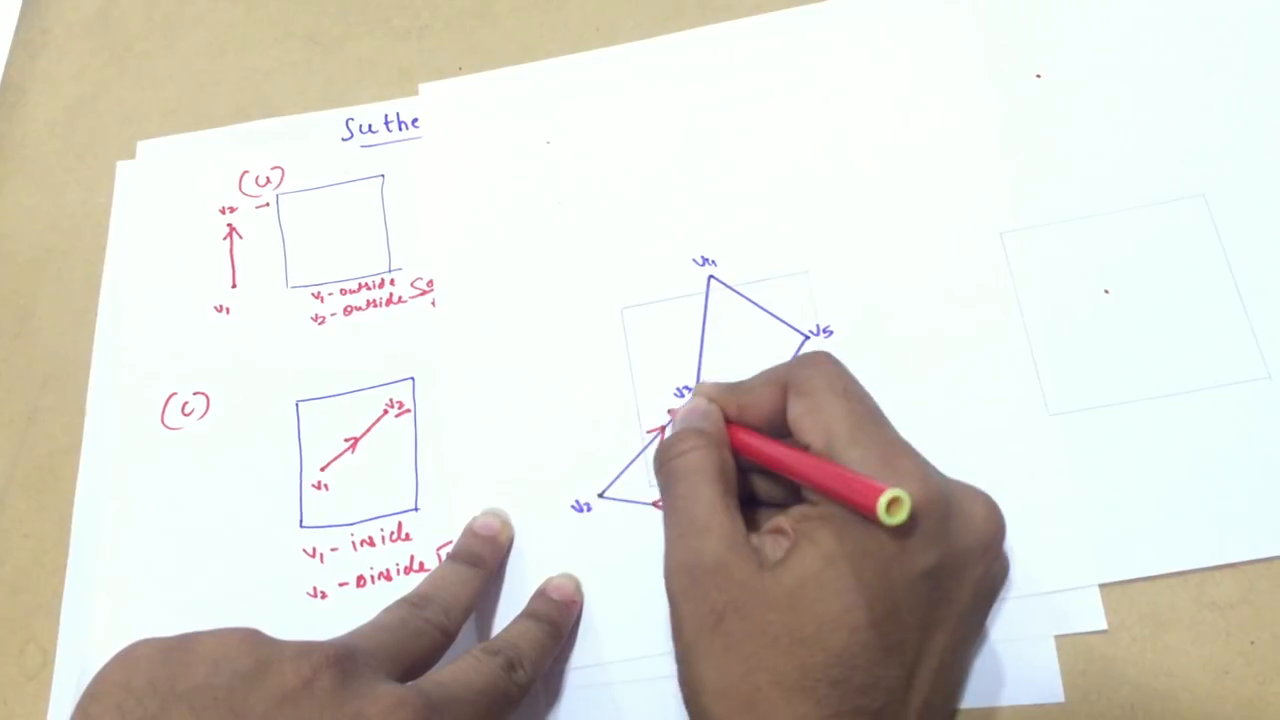 Suthe
(a)
v2
v1
v1 - outside
v2 - outside
(c)
v2
v1
v1 - inside
v4
v5
v3
v2